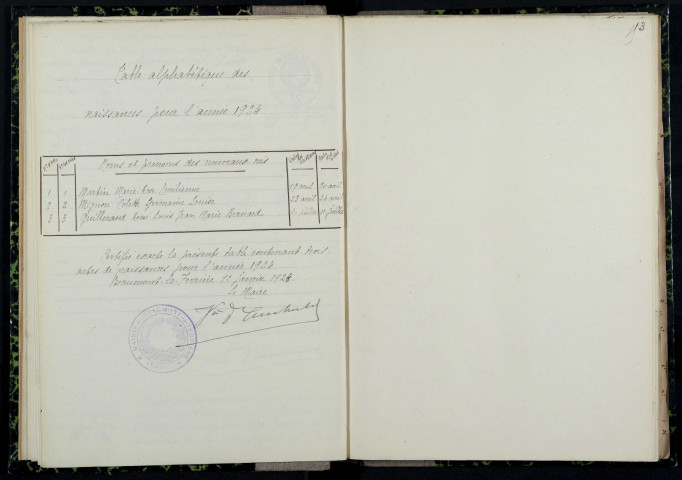 13
Table alphabétique des
naissances pour l'année 1924
Noms et prénoms des nouveaux nés
1 1 Martin Marie Rose Emilienne 19 avril 20 avril
2 2 Mignon Colette Germaine Louise 23 avril 24 avril
3 3 Guillerand René Louis Jean Marie Bernard juillet 11 juillet
Certifiée exacte la présente table contenant trois
actes de naissances pour l'année 1924
Beaumont-la-Ferrière 12 janvier
Le Maire